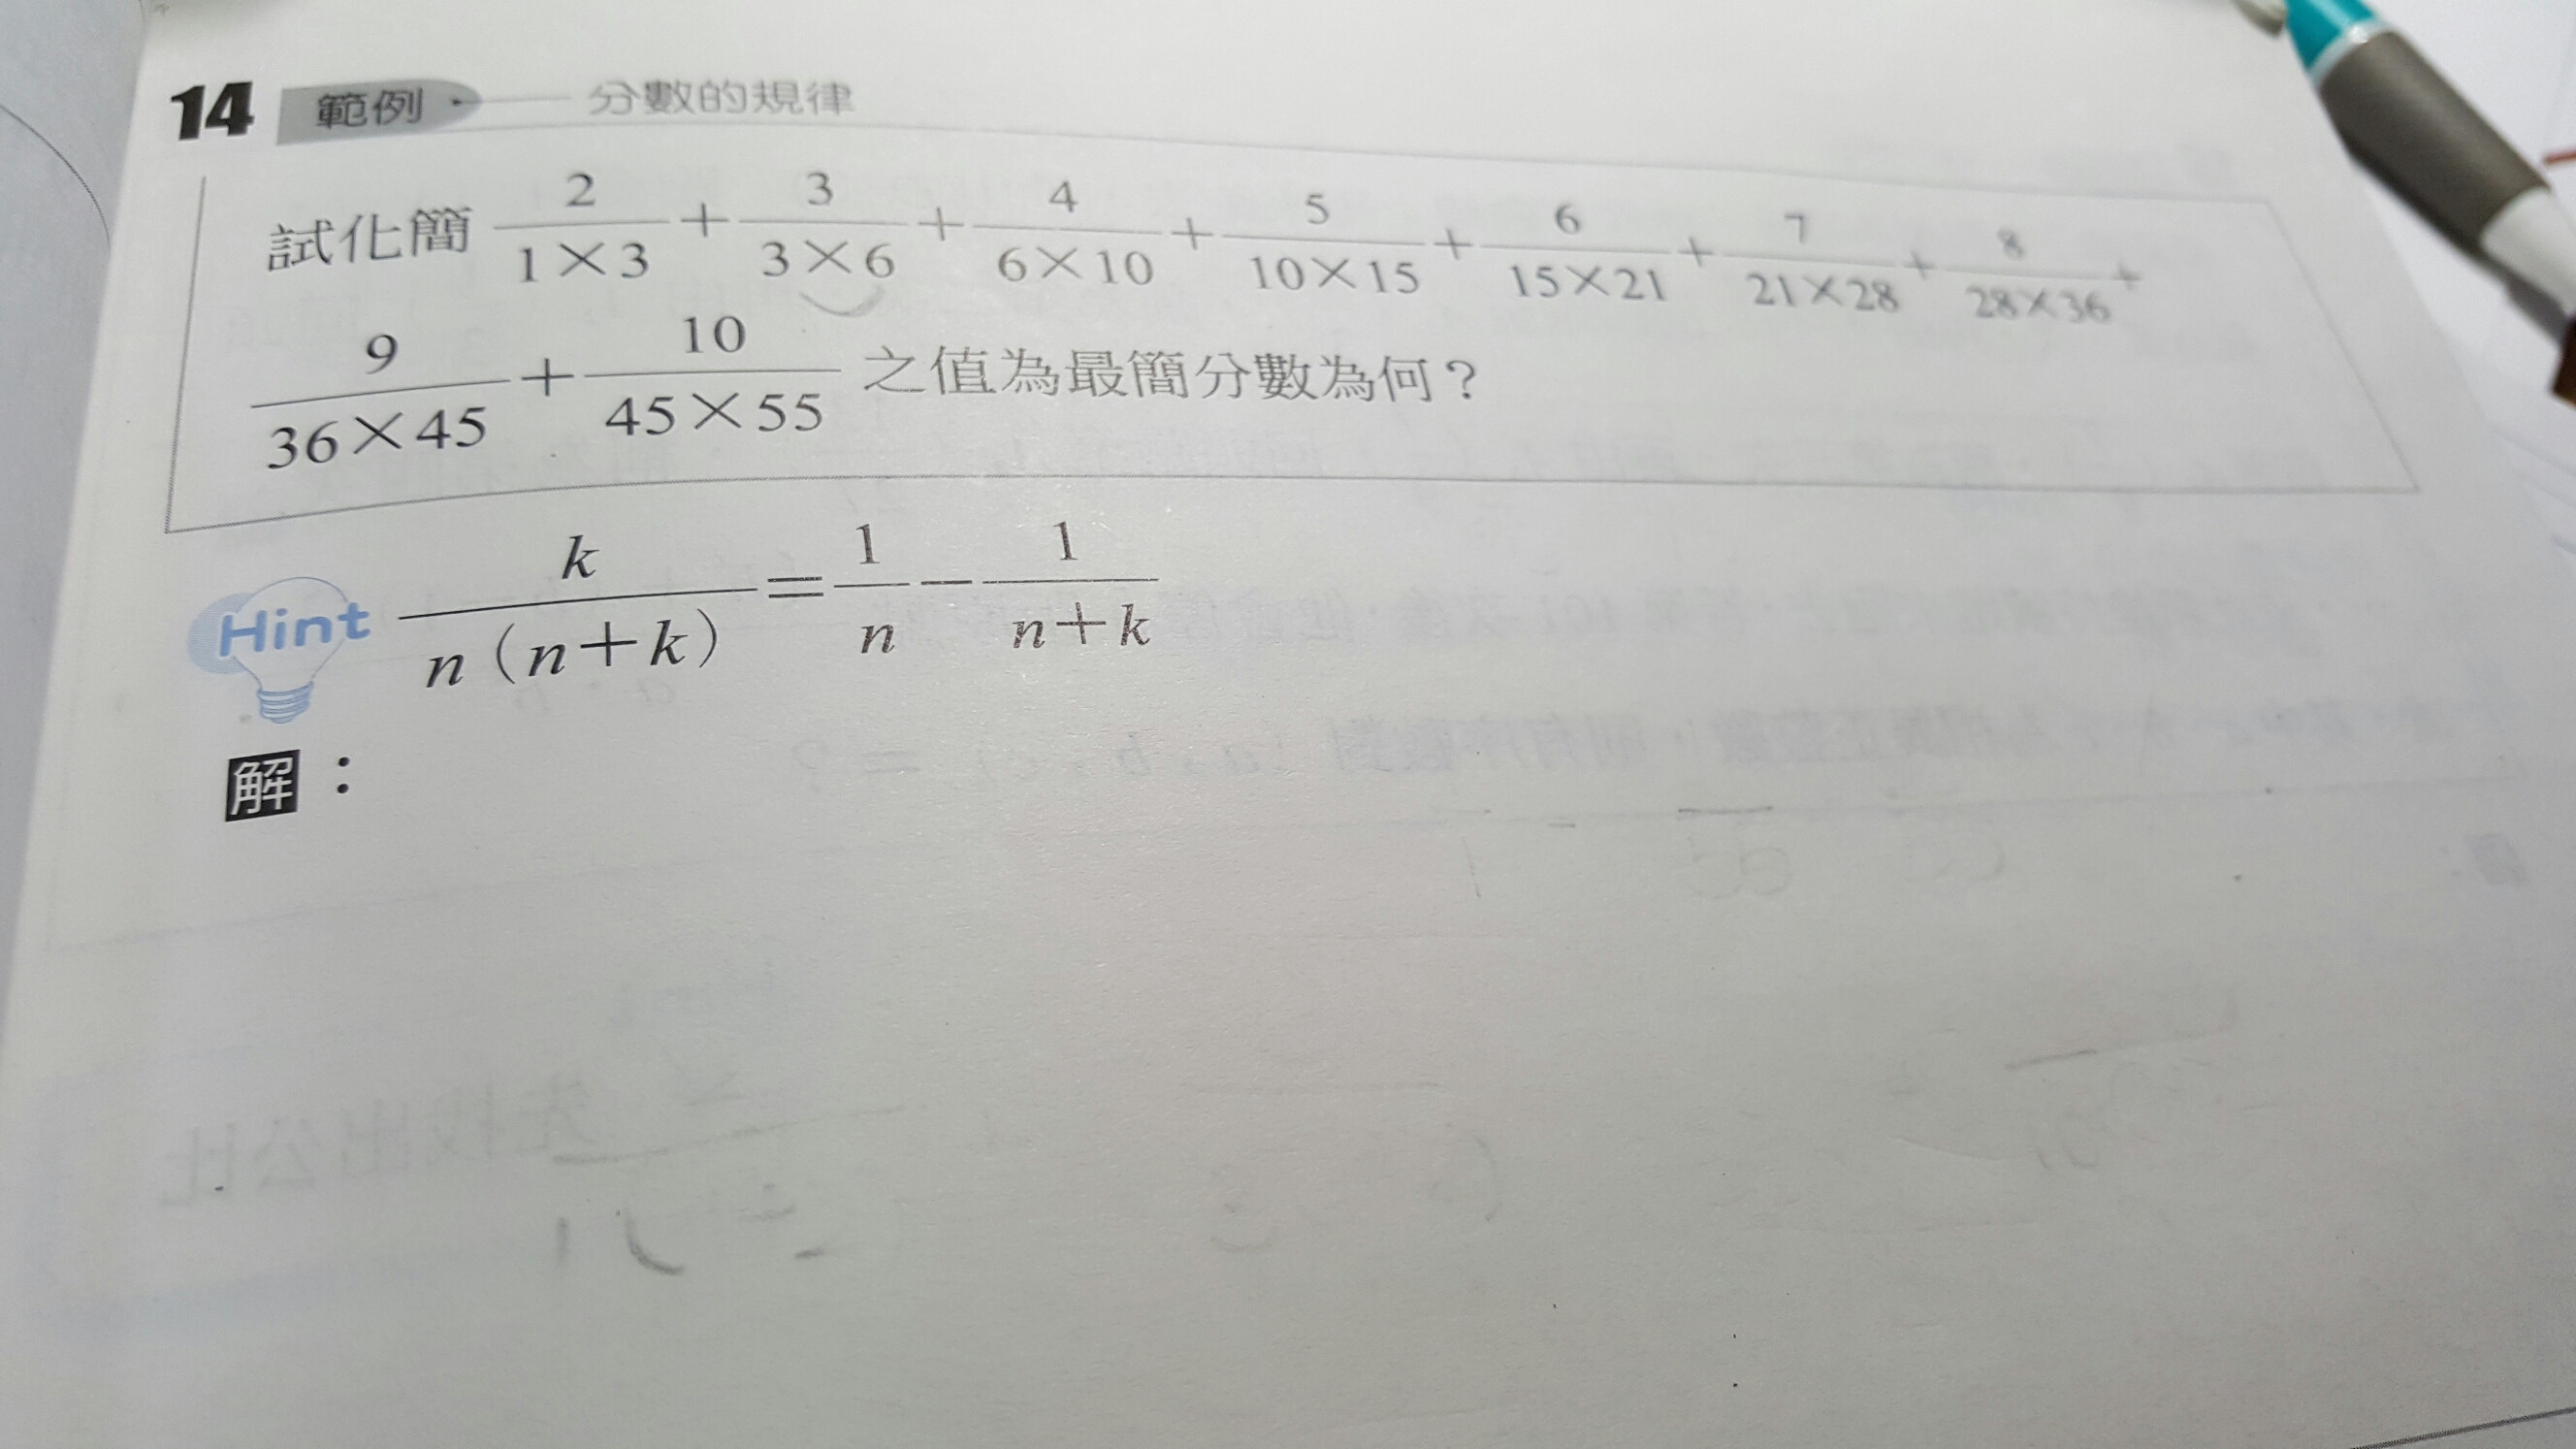 14 範例 分數的規律
試化簡 2/(1×3) + 3/(3×6) + 4/(6×10) + 5/(10×15) + 6/(15×21) + 7/(21×28) + 8/(28×36) +
9/(36×45) + 10/(45×55) 之值為最簡分數為何？
Hint k/(n(n+k)) = 1/n − 1/(n+k)
解：